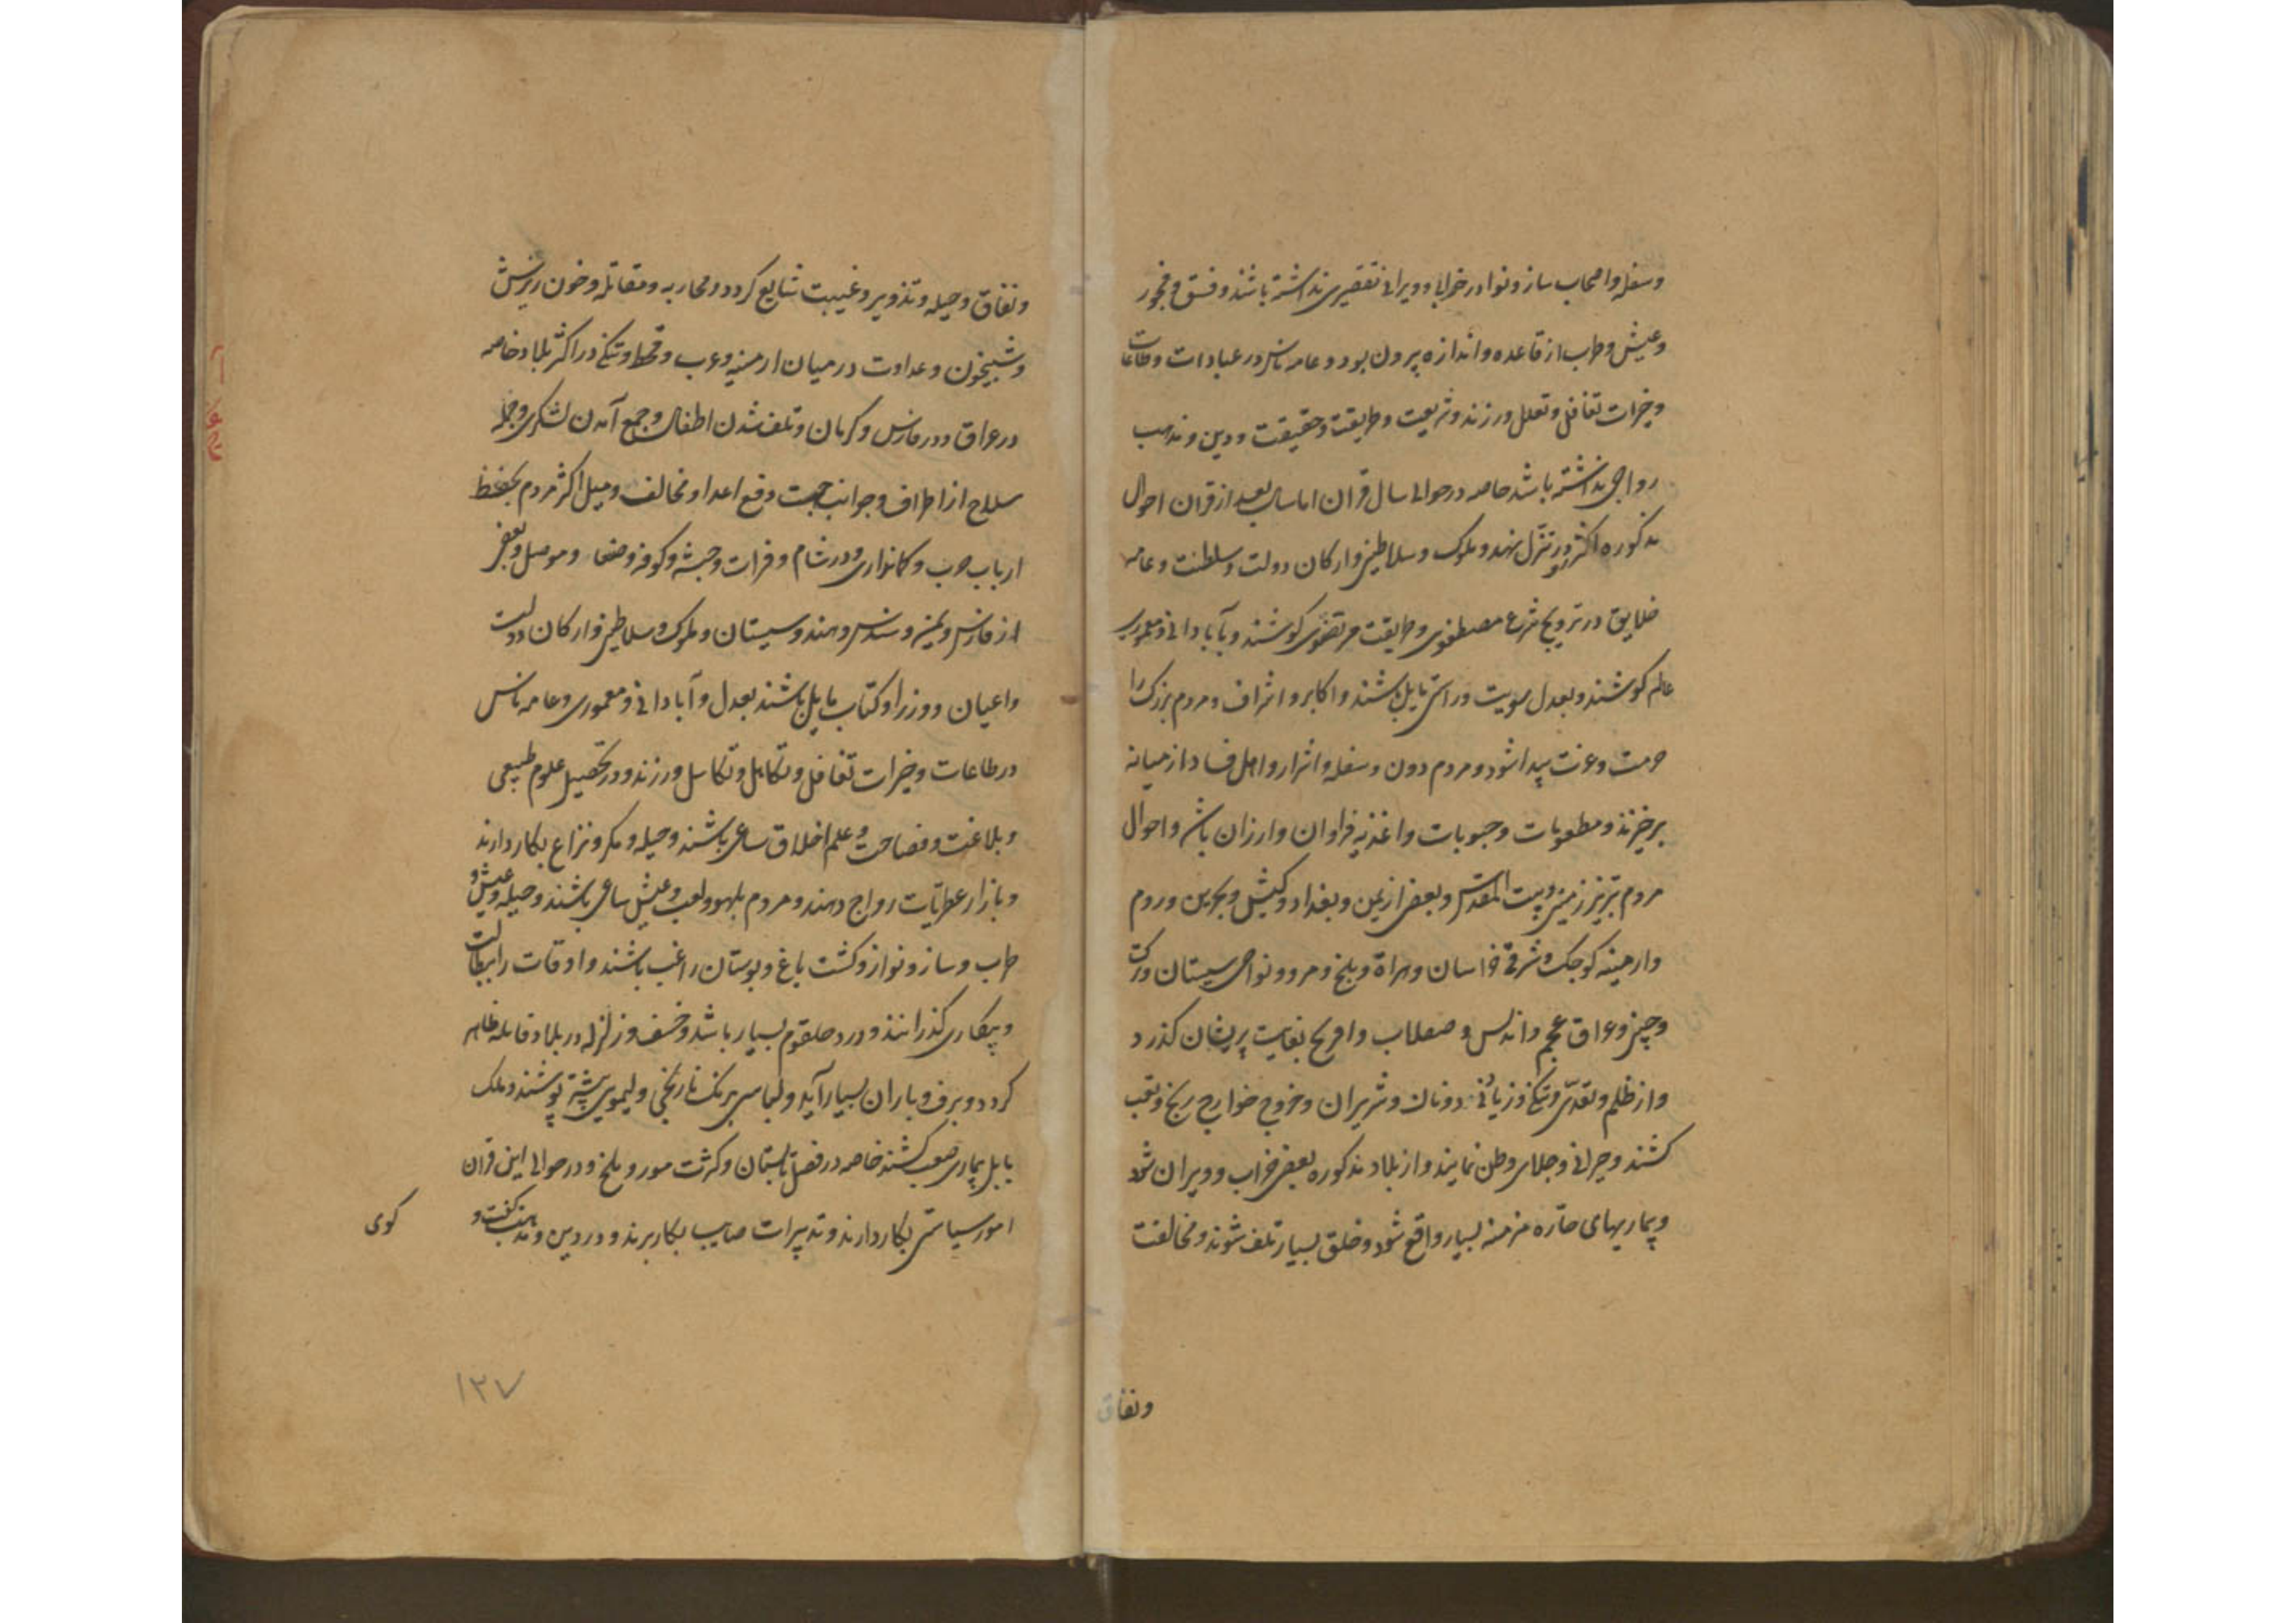 وسفله واصحاب ساز ونوا در خرابی وویرانی تقصیری نداشته باشند وفسق وفجور
وعیش وطرب از قاعده واندازه بیرون بود وعامه ناس در عبادات وطاعات
وخیرات تغافل وتعلل ورزند وشریعت وطریقت وحقیقت ودین ومذهب
رواجی نداشته باشد خاصه در حوالی سال قران اما سال بعد از قران احوال
مذکوره اکثر رو در تنزل نهد وملوک وسلاطین وارکان دولت وسلطنت وعامه
خلایق در ترویج شرع مصطفوی وطریقت مرتضوی کوشند وبآبادانی ومعموری
عالم کوشند وبعدل وسویت وراستی مایل باشند واکابر واشراف ومردم بزرک را
حرمت وعزت پیدا شود ومردم دون وسفله واشرار واهل فساد از میانه
برخیزند ومطعومات وحبوبات واغذیه فراوان وارزان باشد واحوال
مردم تبریز زمین وبیت المقدس وبعضی از یمن وبغداد وکیش وبحرین وروم
وارمینه کوچک وشرقی خراسان وهراة وبلخ ومرو ونواحی سیستان وترکت
وچین وعراق عجم واندلس وصقلاب وافرنج بغایت پریشان کذرد
واز ظلم وتعدی وتنکی وزیانی دونان وشریران وخروج خوارج رنج وتعب
کشند وحیرانی وجلای وطن نمایند واز بلاد مذکوره بعضی خراب وویران شود
وبیماریهای حاره مزمنه بسیار واقع شود وخلق بسیار تلف شوند ومخالفت
ونفاق
ونفاق وحیله وتذویر وغیبت شایع کردد ومحاربه ومقاتله وخون ریزش
وشبیخون وعداوت در میان ارمنیه وعرب وقحط وتنکی در اکثر بلاد خاصه
در عراق ودر فارس وکرمان وتلف شدن اطفال وجمع آمدن لشکری وحمل
سلاح از اطراف وجوانب جهت دفع اعدا ومخالف ومیل اکثر مردم بحفظ
ارباب حرب وکمانداری ودر شام وفرات وحبشه وکوفه وصنعا وموصل وبعضی
از فارس ویمن وسندس وهند وسیستان وملوک وسلاطین وارکان دولت
واعیان ووزرا وکتاب مایل باشند بعدل وآبادانی ومعموری وعامه ناس
در طاعات وخیرات تغافل وتکاهل وتکاسل ورزند ودر تحصیل علوم طبیعی
وبلاغت وفصاحت وعلم اخلاق ساعی باشند وحیله ومکر ونزاع بکار دارند
وبازار عطریات رواج دهند ومردم بلهو ولعب وعیش ساعی باشند وحیله وعیش و
طرب وساز ونواز وکشت باغ وبوستان راغب باشند واوقات را ببطالت
وبیکاری کذرانند ودرد حلقوم بسیار باشد وخسف وزلزله در بلاد قابله ظاهر
کردد وبرف وباران بسیار آید ولباس برنک نارنجی ولیمویی بیشتر پوشند وملک
بابل بیماری صعب کشند خاصه در فصل تابستان وکثرت مور وملخ ودر حوالی این قران
امور سیاستی بکار دارند وتدبیرات صایب بکار برند ودر دین ومذهب کفت و
کوی
۱۲۷